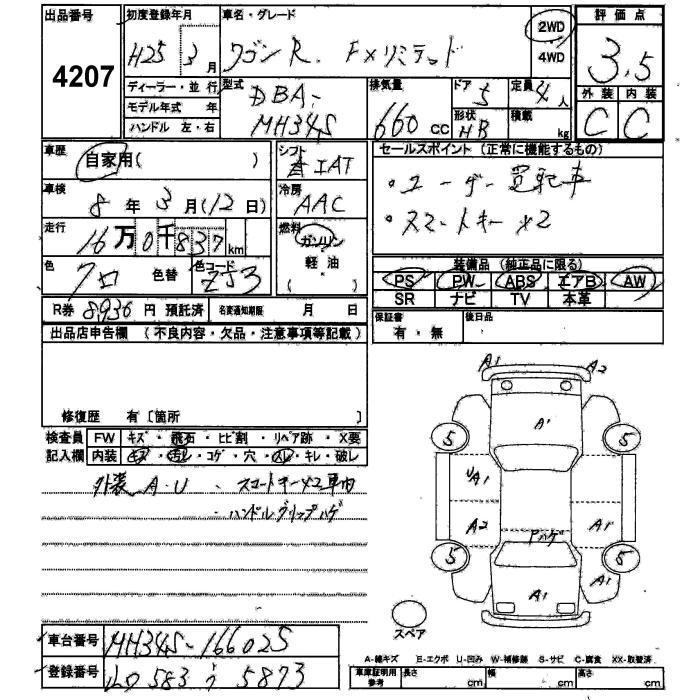 出品番号 4207
初度登録年月 H25 3月
車名・グレード ワゴンR. FXリミテッド
2WD 4WD
評価点 3.5
外装 C 内装 C
ディーラー・並行
モデル年式 年
ハンドル 左・右
型式 DBA- MH34S
排気量 660 cc
ドア 5 形状 HB
定員 4人 積載 kg
車歴 自家用( )
シフト IAT
車検 8年3月(12日)
冷房 AAC
走行 16万0千837km
燃料 ガソリン 軽油 ( )
色 クロ 色替 色カラーコード ZJ3
R券 8936円 預託済 名変通知期限 月 日
セールスポイント (正常に機能するもの)
・ユーザー買取車
・スマートキー×2
装備品 (純正品に限る)
PS PW ABS エアB AW
SR ナビ TV 本革
保証書 有・無 後日品
出品店申告欄 (不良内容・欠品・注意事項等記載)
修復歴 有〔箇所 〕
検査員 FW キズ・飛石・ヒビ割・リペア跡・X要
記入欄 内装 キズ・汚レ・コゲ・穴・スレ・キレ・破レ
外装 A・U ・スマートキー×2車内
・ハンドルグリップハゲ
A1 A2
A'
5 5
UA1
A2 A1
Pハゲ
5 5
A1 A1
スペア
A-線キズ E-エクボ U-凹み W-補修跡 S-サビ C-腐食 XX-取替済
車台番号 MH34S-166025
登録番号 583 う 5873
車庫証明用参考 長さ cm 幅 cm 高さ cm